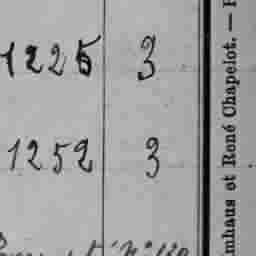 1225 3
1252 3
mhaus et René Chapelot. —